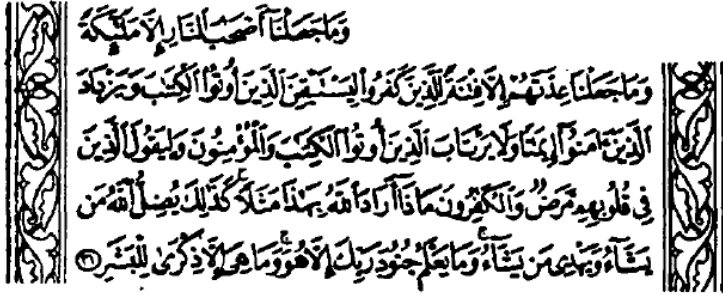 وَمَا جَعَلْنَآ أَصْحَٰبَ ٱلنَّارِ إِلَّا مَلَٰٓئِكَةً
وَمَا جَعَلْنَا عِدَّتَهُمْ إِلَّا فِتْنَةً لِّلَّذِينَ كَفَرُوا۟ لِيَسْتَيْقِنَ ٱلَّذِينَ أُوتُوا۟ ٱلْكِتَٰبَ وَيَزْدَادَ
ٱلَّذِينَ ءَامَنُوٓا۟ إِيمَٰنًا وَلَا يَرْتَابَ ٱلَّذِينَ أُوتُوا۟ ٱلْكِتَٰبَ وَٱلْمُؤْمِنُونَ وَلِيَقُولَ ٱلَّذِينَ
فِى قُلُوبِهِم مَّرَضٌ وَٱلْكَٰفِرُونَ مَاذَآ أَرَادَ ٱللَّهُ بِهَٰذَا مَثَلًا ۚ كَذَٰلِكَ يُضِلُّ ٱللَّهُ مَن
يَشَآءُ وَيَهْدِى مَن يَشَآءُ ۚ وَمَا يَعْلَمُ جُنُودَ رَبِّكَ إِلَّا هُوَ ۚ وَمَا هِىَ إِلَّا ذِكْرَىٰ لِلْبَشَرِ ٣١